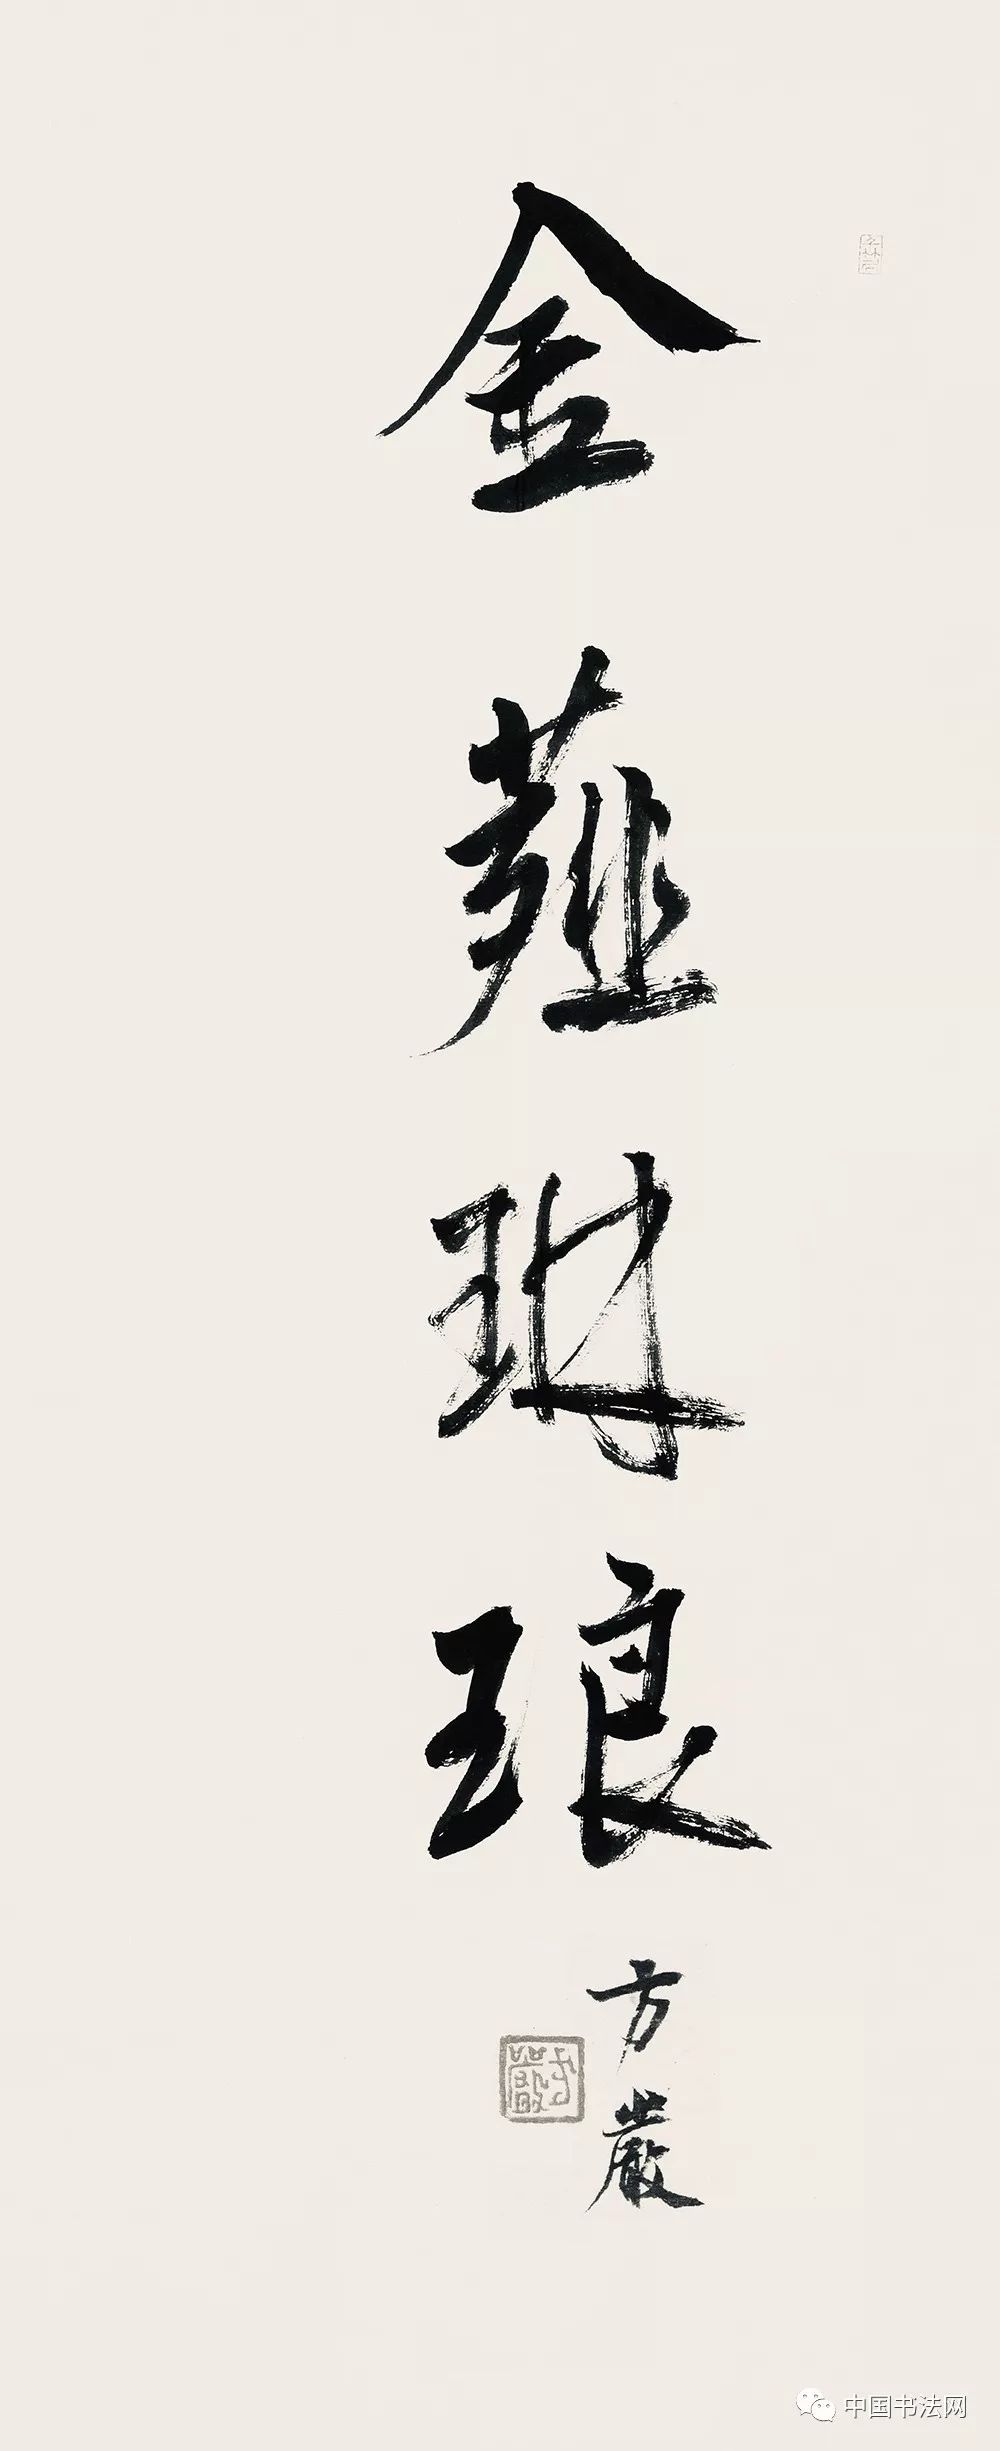 金薤琳琅
方嚴
方嚴
中国书法网